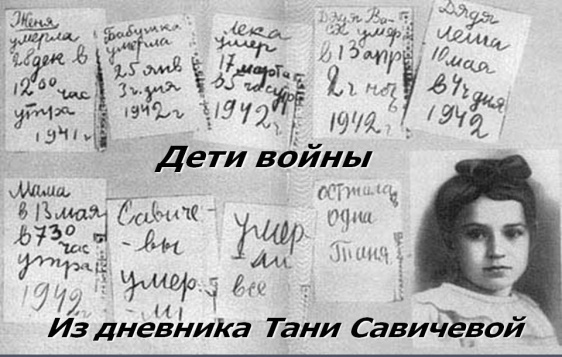 Женя
умерла
28 дек в
12 00 час
утра
1941 г
Бабушка
умерла
25 янв
3 ч. дня
1942 г
Лека
умер
17 марта
в 5 час утр
1942 г
Дядя Ва-
ся умер
в 13 апр
2 ч ноч
1942 г
Дядя
Леша
10 мая
в 4 ч дня
1942
Дети войны
Мама
в 13 мая
в 7 30
час
утра
1942
Савиче-
-вы
умер-
-ли
умер
-ли
все
осталась
одна
Таня
Из дневника Тани Савичевой